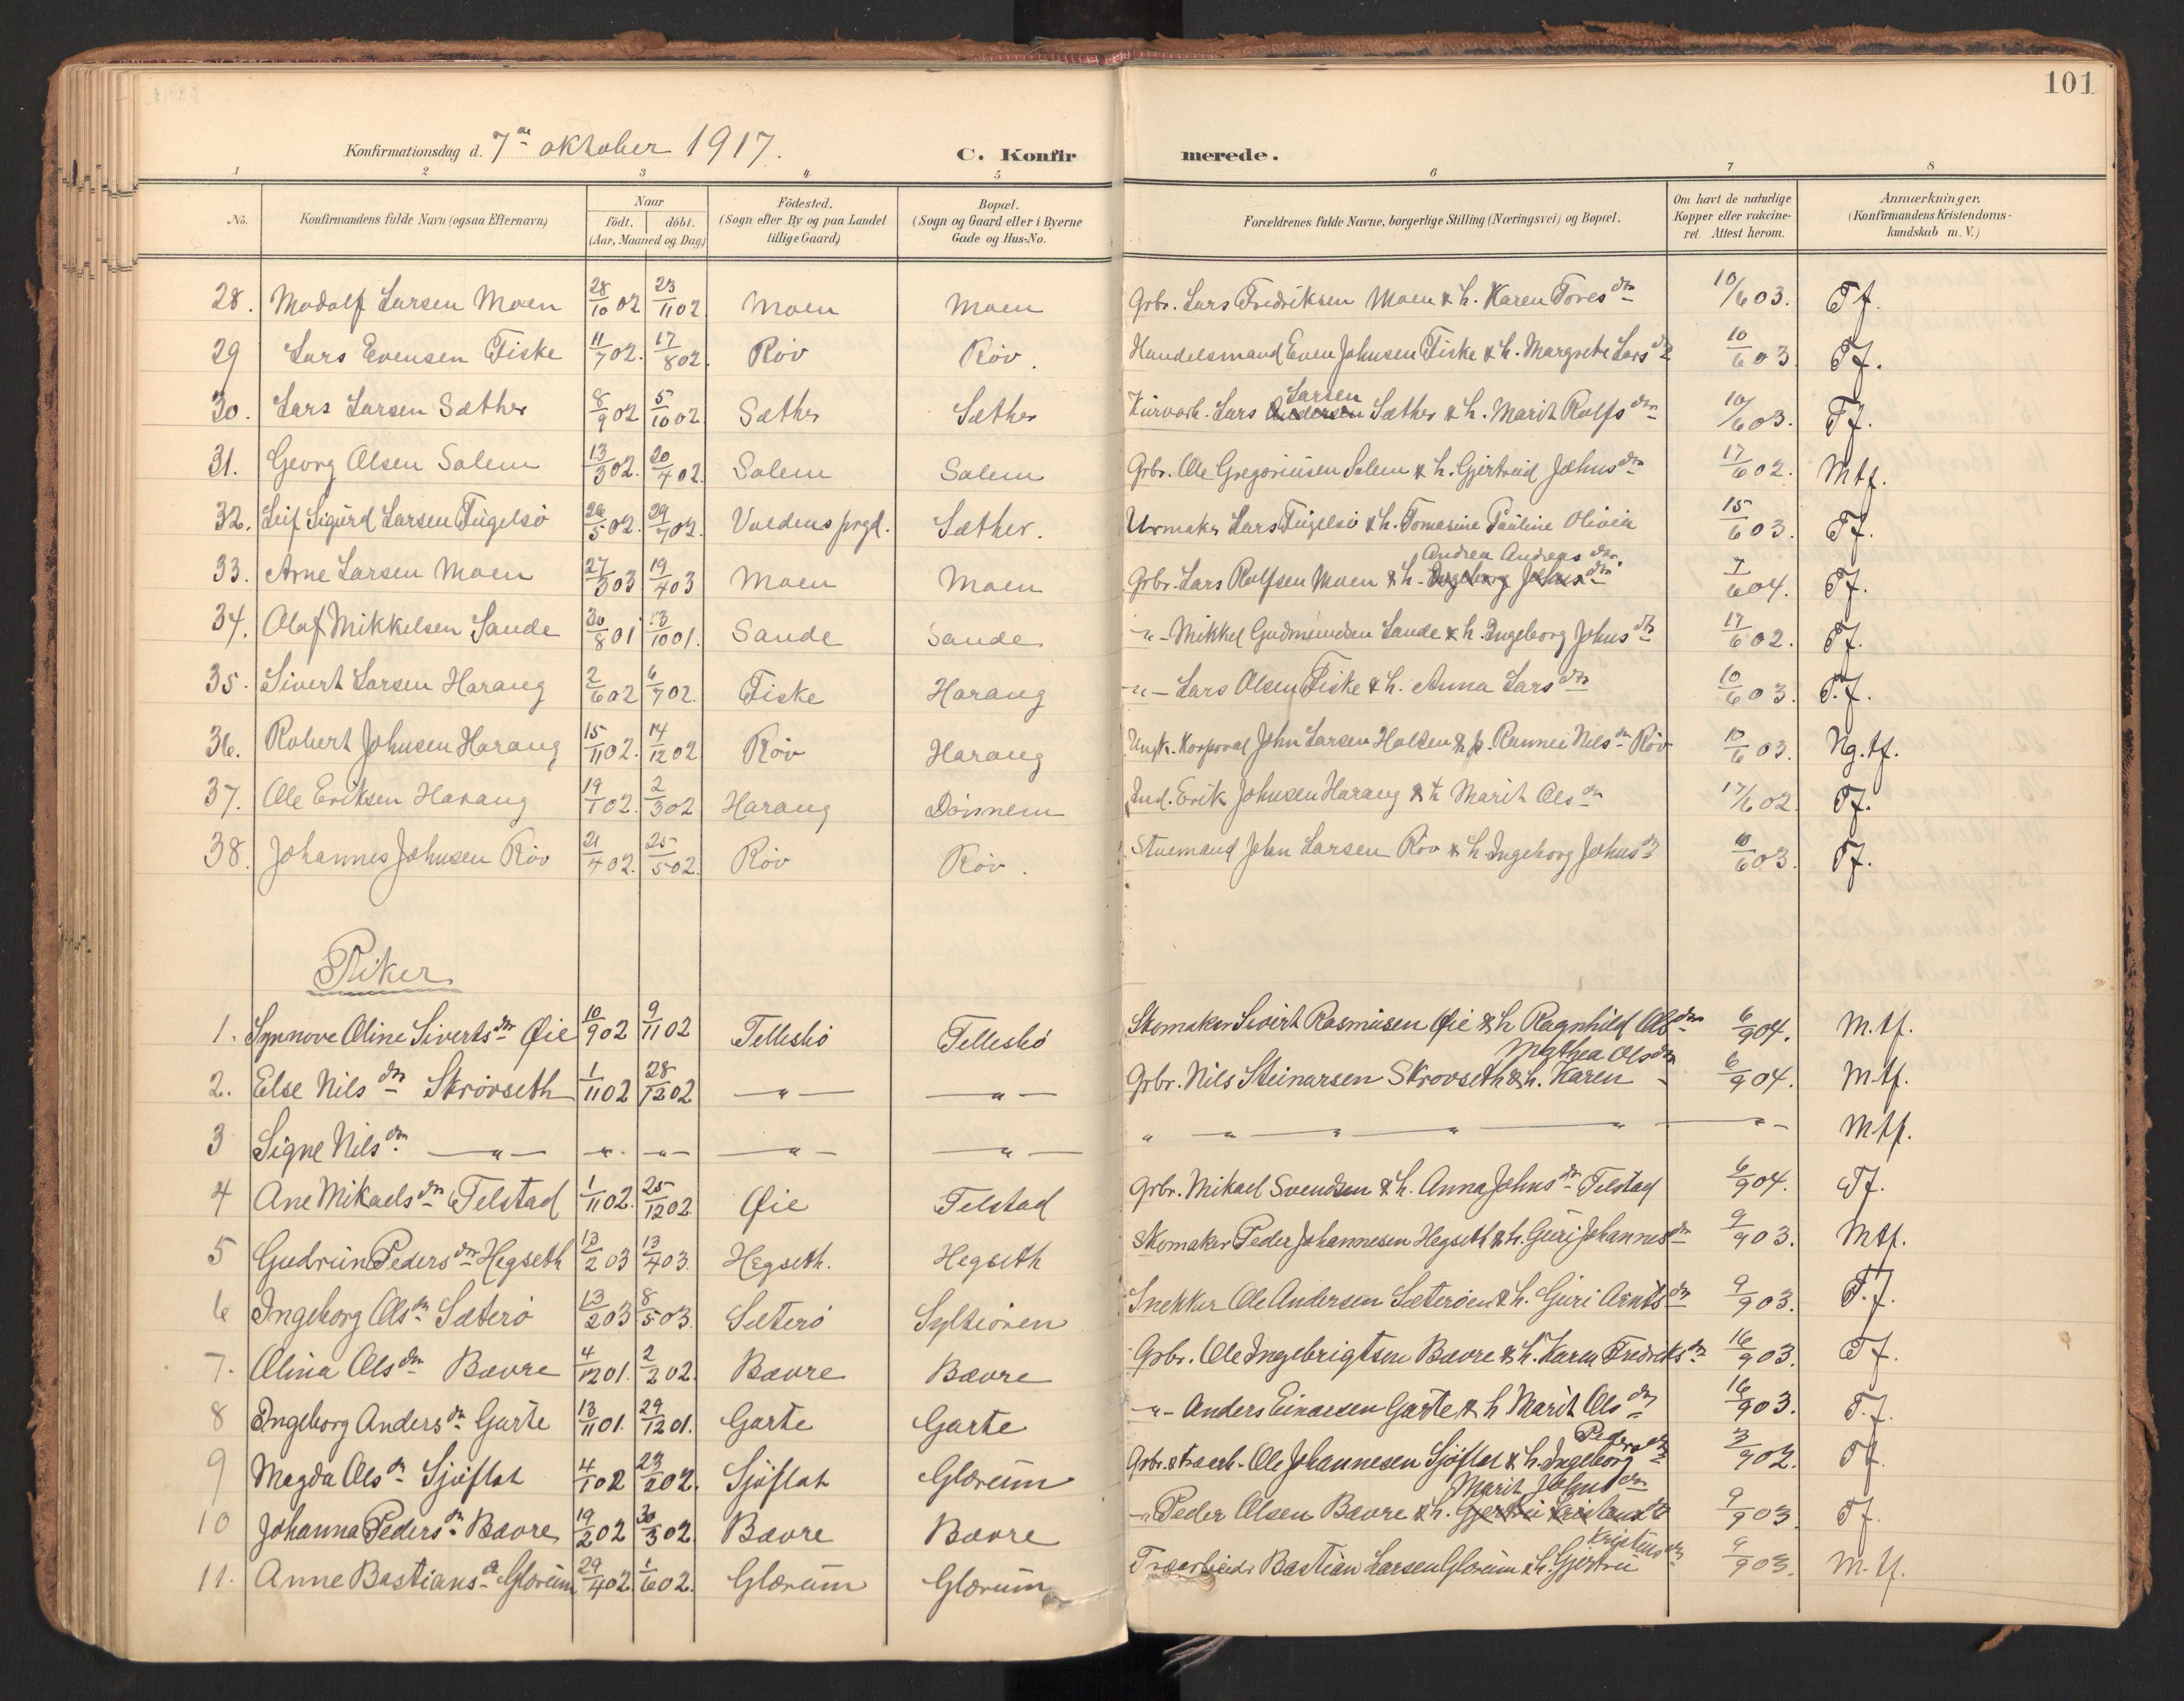 101
Konfirmationsdag d. 7de oktober 1917. C. Konfirmerede.
1 2 3 4 5 6 7 8
No. Konfirmandens fulde Navn (ogsaa Efternavn) Naar født. døbt. (Aar, Maaned og Dag) Fødested. (Sogn efter By og paa Landet tillige Gaard) Bopæl. (Sogn og Gaard eller i Byerne Gade og Hus-No. Forældrenes fulde Navne, borgerlige Stilling (Næringsvei) og Bopæl. Om havt de naturlige Kopper eller vakcineret. Attest herom. Anmærkninger. (Konfirmandens Kristendomskundskab m. V.)
28. Modolf Larsen Moen 28/10 02 23/11 02 Moen Moen Grbr. Lars Fredriksen Moen & h. Karen Toresdtr 10/6 03. T f.
29 Lars Evensen Fiske 11/7 02. 17/8 02. Røv Røv. Handelsmand Even Johnsen Fiske & h. Margrete Larsdtr 10/6 03 T f.
30. Lars Larsen Sæther 8/9 02 5/10 02. Sæther Sæther Lars Larsen Sæther & h. Marit Rolfsdtr 10/6 03. T f.
31. Georg Olsen Solem 13/3 02. 20/4 02. Solem Solem Grbr. Ole Gregoriusen Solem & h. Gjertrud Johnsdtr 17/6 02. Mtf.
32. Leif Sigurd Larsen Fugelsø 26/5 02. 29/7 02. Voldens prgd. Sæther. Urmaker Lars Fugelsø & h. Tomasine Pauline Olivia 15/6 03. T f.
33. Arne Larsen Moen 27/3 03 19/4 03 Moen Moen Grbr. Lars Rolfsen Moen & h. Andrea Andreasdtr. Ingeborg Johnsdtr 7/6 04. T f.
34. Olaf Mikkelsen Sande 30/8 01 13/10 01. Sande Sande -"- Mikkel Gudmundsen Sande & h. Ingeborg Johnsdtr 17/6 02. T f.
35. Sivert Larsen Harang 2/6 02 6/7 02. Fiske Harang -"- Lars Olsen Fiske & h. Anna Larsdtr 10/6 03. T. f.
36. Robert Johnsen Harang 15/11 02. 14/12 02 Røv Harang Ungk. Korporal John Larsen Halsen & p. Rannei Nilsdtr Røv 10/6 03. Ng. tf.
37. Ole Eriksen Harang 19/1 02. 2/3 02 Harang Dønnem Ind. Erik Johnsen Harang & h Marit Olsdtr 17/6 02. T f.
38. Johannes Johnsen Røv 21/4 02. 25/5 02. Røv Røv. Stuemand John Larsen Røv & h. Ingeborg Johnsdtr 10/6 03. T f.
Piker
1. Synnove Oline Sivertsdtr Øie 10/9 02 9/11 02 Telleshø Telleshø Skomaker Sivert Rasmusen Øie & h Ragnhild Olsdtr 6/9 04. M. tf.
2. Else Nilsdtr Skrøvseth 1/11 02 28/12 02 -"- -"- Grbr. Nils Steinarsen Skrøvseth & h. Karen Mathea Olsdtr 6/9 04. M tf.
3 Signe Nilsdtr. -"- -"- -"- -"- -"- " - " - " - " - " - M tf.
4 Ane Mikaelsdtr Telstad 1/11 02. 25/12 02. Øie Telstad Grbr. Mikael Svendsen & h. Anna Johnsdtr Telstad 6/9 04. T f.
5 Gudrun Pedersdtr Hegseth 13/2 03 13/4 03. Hegseth. Hegseth Skomaker Peder Johannesen Hegseth & h. Guri Johannesdtr 9/9 03. M tf.
6 Ingeborg Olsdtr Sæterø 13/2 03 8/5 03. Sæterø Syltiøren Snekker Ole Andersen Sæterøen & h. Guri Arntsdtr 9/9 03. T. f.
7. Olina Olsdtr Bævre 4/12 01. 2/2 02. Bævre Bævre Grbr. Ole Ingebrigtsen Bævre & h. Karen Fredriksdtr 16/9 03. T f.
8 Ingeborg Andersdtr Garte 13/11 01. 29/12 01. Garte Garte -"- Anders Einarsen Garte & h Marit Olsdtr 16/9 03. T. f.
9 Magda Olsdtr Sjøflot 4/1 02 23/2 02. Sjøflot Glærum Grbr. & træarb. Ole Johannesen Sjøflot & h. Ingeborg Pedersdtr 3/9 02. T f.
10 Johanna Pedersdtr Bævre 19/2 02 30/3 02. Bævre Bævre -"- Peder Olsen Bævre & h. Marit Johnsdtr 9/9 03. T f.
11. Anne Bastiansdtr Glærum 29/4 02. 1/6 02. Glærum Glærum Træarbeider Bastian Larsen Glærum & h. Gjertru Kristensdtr 9/9 03. M. tf.